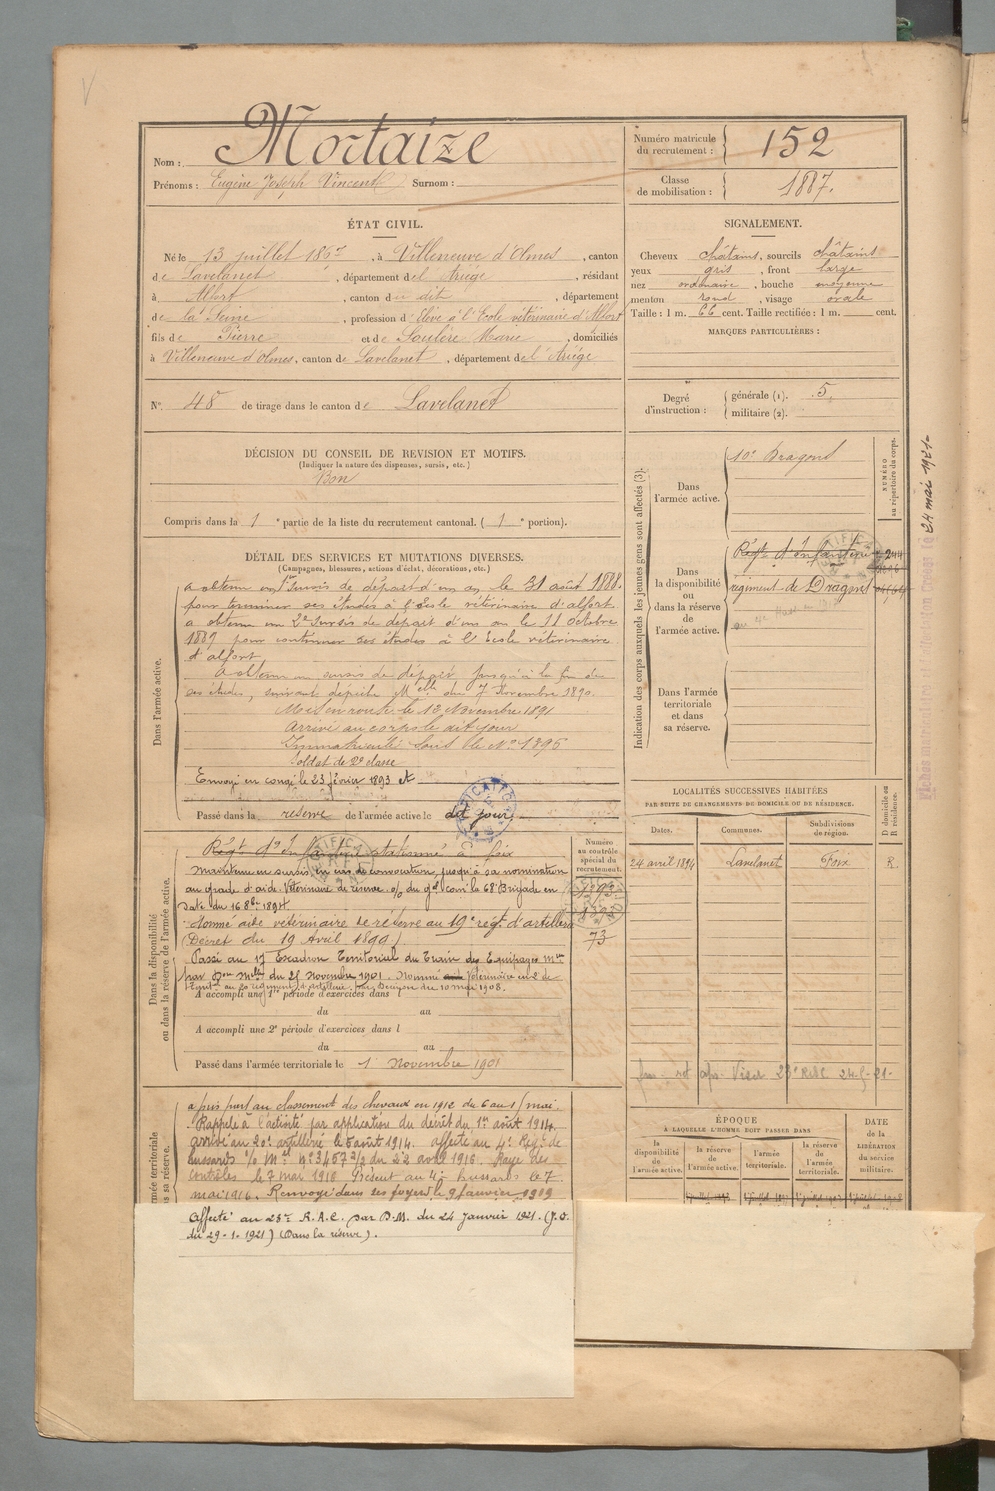 Nom : Mortaize
Prénoms : Eugène Joseph Vincent Surnom :
Numéro matricule du recrutement : 152
Classe de mobilisation : 1887.
ÉTAT CIVIL.
Né le 13 juillet 1867, à Villeneuve d'Olmes, canton
de Lavelanet, département de l'Ariège, résidant
à Alfort, canton du dit, département
de la Seine, profession d'élève à l'Ecole vétérinaire d'Alfort
fils de Pierre et de Soulère Marie, domiciliés
à Villeneuve d'Olmes, canton de Lavelanet, département de l'Ariège
N° 48 de tirage dans le canton de Lavelanet
SIGNALEMENT.
Cheveux châtains, sourcils châtains
yeux gris, front large
nez ordinaire, bouche moyenne
menton rond, visage ovale
Taille : 1 m. 66 cent. Taille rectifiée : 1 m. cent.
MARQUES PARTICULIÈRES :
Degré d'instruction : générale (1). 5.
militaire (2).
DÉCISION DU CONSEIL DE REVISION ET MOTIFS.
(Indiquer la nature des dispenses, sursis, etc.)
Bon
Compris dans la 1e partie de la liste du recrutement cantonal. (1e portion).
DÉTAIL DES SERVICES ET MUTATIONS DIVERSES.
(Campagnes, blessures, actions d'éclat, décorations, etc.)
Dans l'armée active.
a obtenu un 1er sursis de départ d'un an le 31 août 1888
pour terminer ses études à l'Ecole vétérinaire d'alfort
a obtenu un 2e sursis de départ d'un an le 11 octobre
1889 pour continuer ses études à l'Ecole vétérinaire
d'alfort
A obtenu un sursis de départ jusqu'à la fin de
ses études, suivant dépêche Melle du 7 Novembre 1890.
Mis en route le 13 Novembre 1891
Arrivé au corps le dit jour
Immatriculé sous le N° 1396
Soldat de 2e classe
Envoyé en congé le 23 février 1893 et
Passé dans la réserve de l'armée active le dit jour.
Dans la disponibilité ou dans la réserve de l'armée active.
Régt d'Infanterie stationné à Foix
maintenu en sursis en cas de convocation, jusqu'à sa nomination
au grade d'aide-Vétérinaire de réserve o/ du gal comt la 68e Brigade en
date du 16 8bre 1894
Nommé aide vétérinaire de réserve au 19e régt d'artillerie
(Décret du 19 Avril 1899)
Passé au 17 Escadron Territorial du Train des Equipages Mres
par Don Melle du 25 Novembre 1901. Nommé
par Décision du 10 mai 1908.
A accompli une 1re période d'exercices dans l
du au
A accompli une 2e période d'exercices dans l
du au
Passé dans l'armée territoriale le 1 Novembre 1901
Numéro au contrôle spécial du recrutement.
73
Indication des corps auxquels les jeunes gens sont affectés (3).
NUMÉRO au répertoire du corps.
Dans l'armée active.
10e Dragons
Dans la disponibilité ou dans la réserve de l'armée active.
Régt d'Infanterie
régiment de Dragons
Dans l'armée territoriale et dans sa réserve.
24 mai 1921
LOCALITÉS SUCCESSIVES HABITÉES
PAR SUITE DE CHANGEMENTS DE DOMICILE OU DE RÉSIDENCE.
Dates. Communes. Subdivisions de région. D domicile ou R résidence.
24 avril 1894 Lavelanet Foix R.
ÉPOQUE
A LAQUELLE L'HOMME DOIT PASSER DANS
la disponibilité de l'armée active. la réserve de l'armée active. l'armée territoriale. la réserve de l'armée territoriale.
DATE de la LIBÉRATION du service militaire.
a pris part au classement des chevaux en 1912 du 6 au 15 mai
Rappelé à l'activité par application du décret du 1er août 1914,
arrivé au 20e artillerie le 5 août 1914. affecté au 4e Reg. de
hussards o/ Mel n° 3457 2/2 du 22 avril 1916. Rayé des
contrôles le 7 mai 1916 Présent au 4e hussards le 7
mai 1916. Renvoyé dans ses foyers le 9 Janvier 1919
Affecté au 23e R.A.C. par D.M. du 24 Janvier 1921. (J.O.
du 29-1-1921) (Dans la réserve).